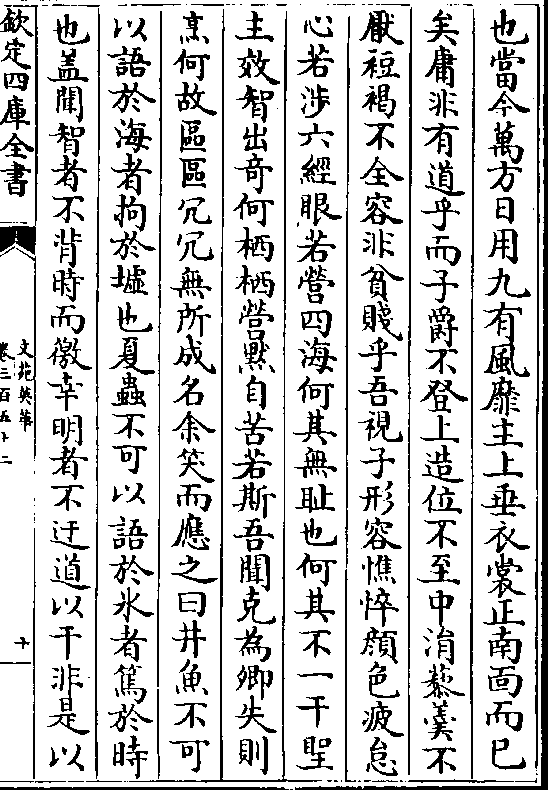 也當今萬方日用九有風靡主上垂衣裳正南面而已
矣庸非有道乎而子爵不登上造位不至中涓藜羹不
厭裋褐不全容非貧賤乎吾視子形容憔悴顔色疲怠
心若涉六經眼若營四海何其無恥也何其不一干聖
主效智出奇何栖栖營黙自苦若斯吾聞克為卿失則
烹何故區區冗冗無所成名余笑而應之曰井魚不可
以語於海者拘於墟也夏蟲不可以語於氷者篤於時
也盖聞智者不背時而徼幸明者不迂道以干非是以
欽定四庫全書
文苑英華
卷三百五十二
十